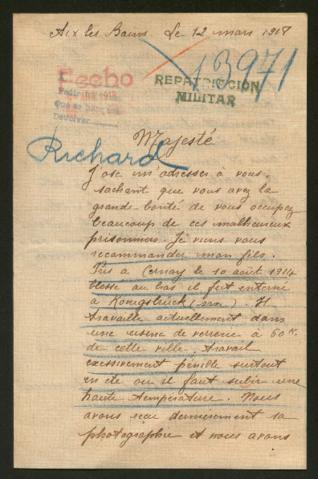 Aix les Bains, Le 12 mars 1918
13971
Hecho
REPATRIACION
MILITAR
Majesté
Richard
J'ose m'adresser à vous
sachant que vous avez la
grande bonté de vous occuper
beaucoup de ces malheureux
prisonniers. Je viens vous
recommander mon fils.
Pris à Cernay le 10 août 1914
blessé au bas il fut interné
à Königsbrück (Sax). Il
travaille actuellement dans
une usine de verrerie à 60 K.
de cette ville, travail
excessivement pénible surtout
en été ou il faut subir une
haute température. Nous
avons reçu dernièrement sa
photographie et nous avons